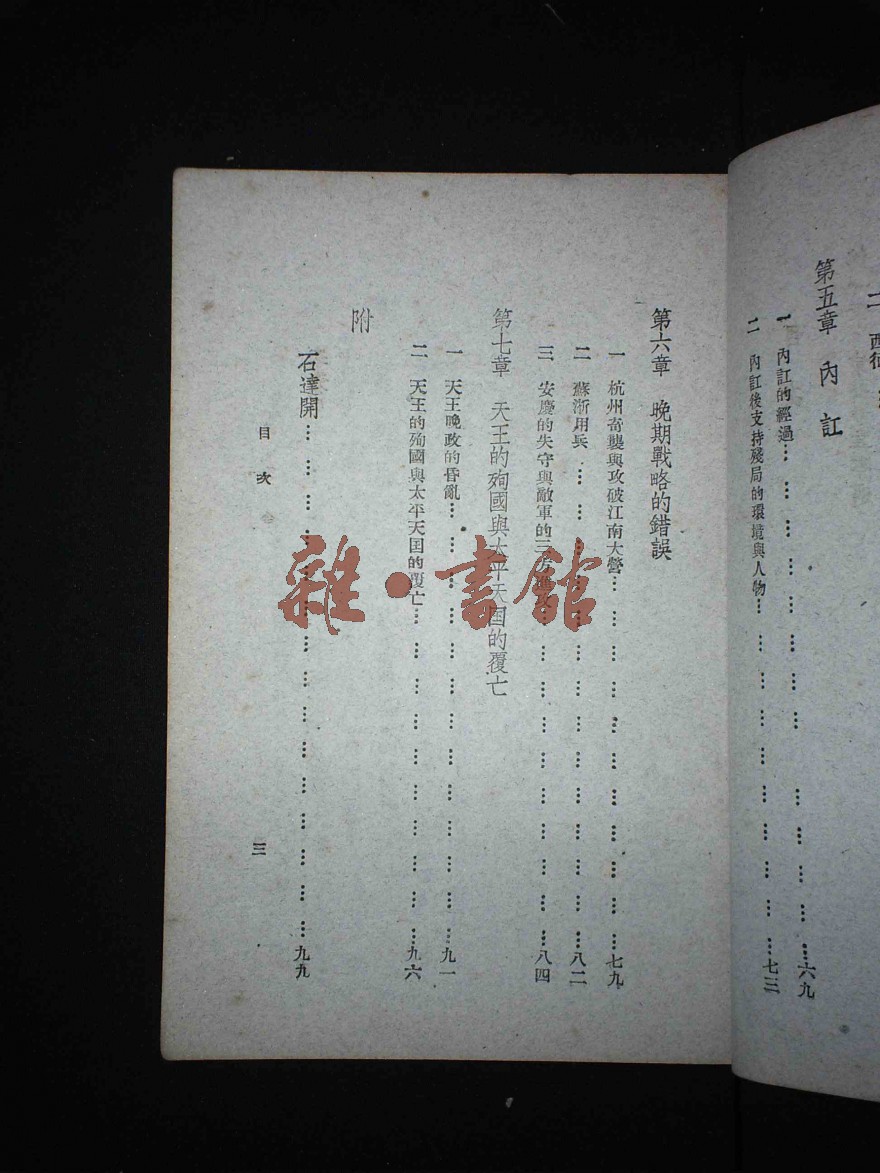 二 西征
第五章 內訌
一 內訌的經過………………………六九
二 內訌後支持殘局的環境與人物………………………七三
第六章 晚期戰略的錯誤
一 杭州奇襲與攻破江南大營………………………七九
二 蘇浙用兵………………………八二
三 安慶的失守與敵軍的三方進攻………………………八四
第七章 天王的殉國與太平天国的覆亡
一 天王晚政的昏亂………………………九一
二 天王的殉國與太平天国的覆亡………………………九六
附
石達開………………………九九
目次
三
雜·書館